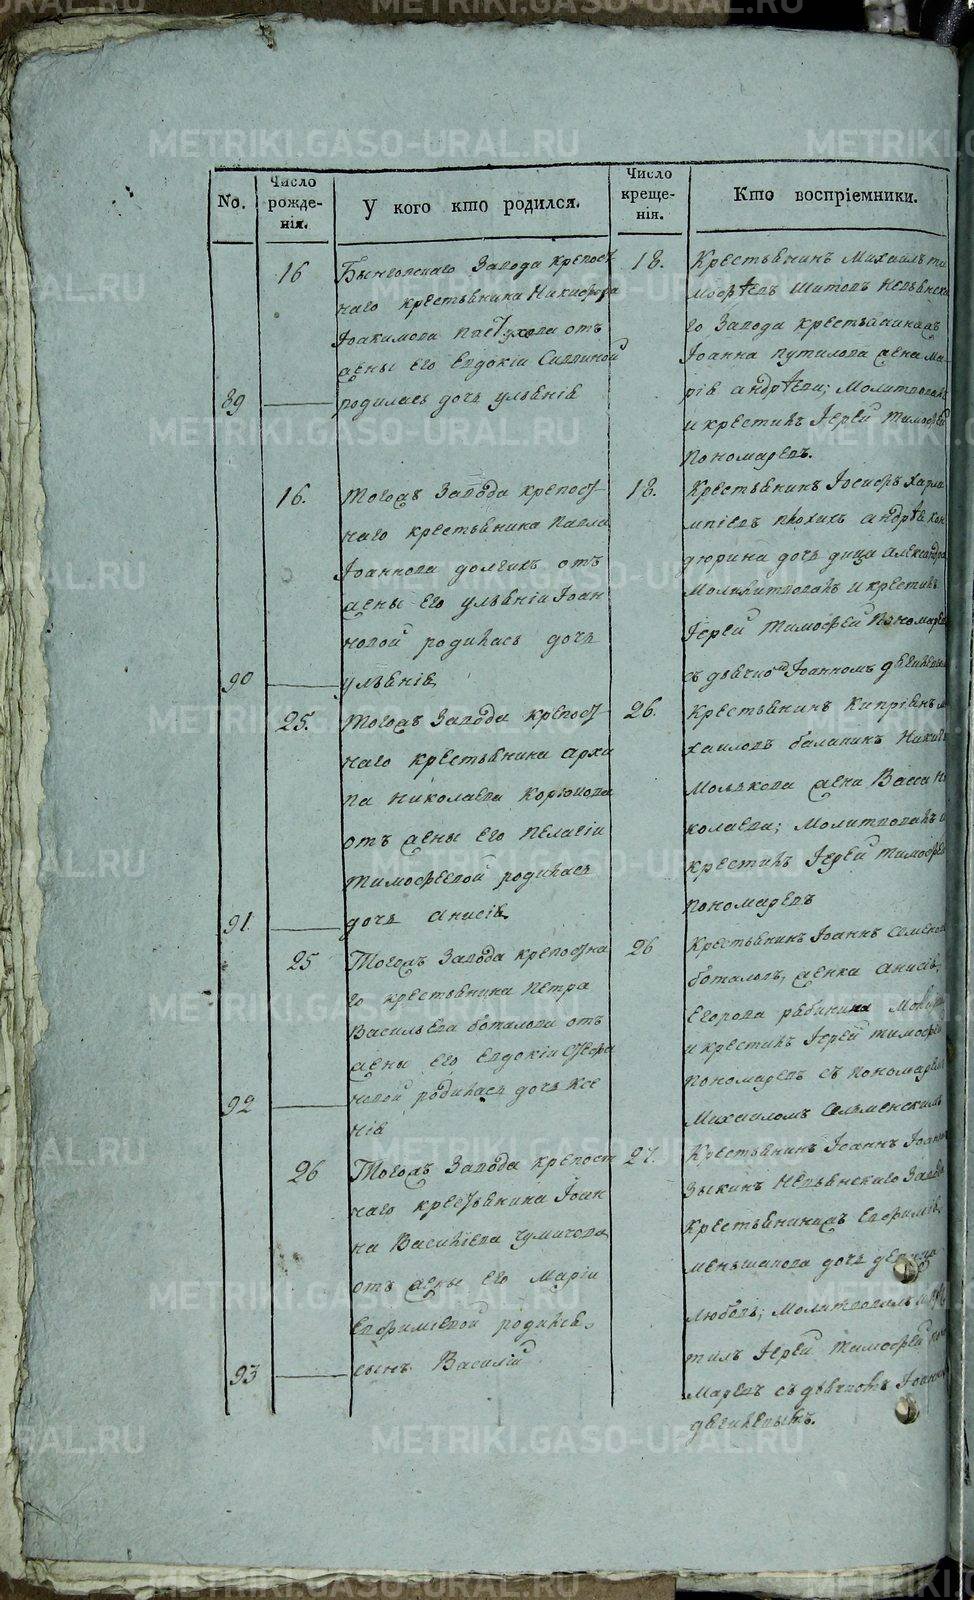 No.
Число рожде-нія.
У кого кто родился.
Число креще-нія.
Кто воспріемники.
89
16
Бынговскаго Завода крепост
наго крестьянина Никифора
Іоакимова Пастухова отъ
жены его Евдокіи Саввиной
родилась дочь Ульянія
18.
Крестьянинъ Михаилъ Ти
мофѣевъ Шитовъ Невьянска
го Завода крестьянина
Іоанна Путилова жена Ма
рія Андрѣева; Молитвовалъ
и крестилъ Іерей Тимофей
Пономаревъ.
90
16.
Тогожъ Завода крепост
наго крестьянина Павла
Іоаннова Долгихъ отъ
жены его Ульяніи Іоан
новой родилась дочь
Ульянія
18.
Крестьянинъ Іосифъ Харла
мпіевъ Плохихъ Андрѣя Кон
дюрина дочь дѣвица Александра
Молитвовалъ и крестилъ
Іерей Тимофей Пономаревъ
съ дьячкомъ Іоанномъ
91
25.
Тогожъ Завода крепост
наго крестьянина Архи
па Николаева Корюкова
отъ жены его Пелагіи
Тимофеевой родилась
дочь Анисія
26.
Крестьянинъ Кипріянъ М
хаиловъ Балапинъ Никит
Молькова жена Васса Ни
колаева; Молитвовалъ и
крестилъ Іерей Тимофей
Пономаревъ
92
25
Тогожъ Завода крепостна
го крестьянина Петра
Васильева Боталова отъ
жены его Евдокіи Стефа
новой родилась дочь Ксе
нія
26
Крестьянинъ Іоаннъ Семенов
Боталовъ, женка Анисія,
Егорова Рябинина
и крестилъ Іерей Тимофей
Пономаревъ съ пономаремъ
Михаиломъ Сельменскимъ
93
26
Тогожъ Завода крепост
наго крестьянина Іоан
на Васильева Чумичова
отъ жены его Маріи
Евфиміевой родился
сынъ Василій
27.
Крестьянинъ Іоаннъ Іоаннов
Зыкинъ Невьянскаго Завода
крестьянина Евфимія
Меньшакова дочь девица
Любовь; Молитвовалъ и крес
тилъ Іерей Тимофей Поно
маревъ съ дьячкомъ Іоанном
METRIKI.GASO-URAL.RU